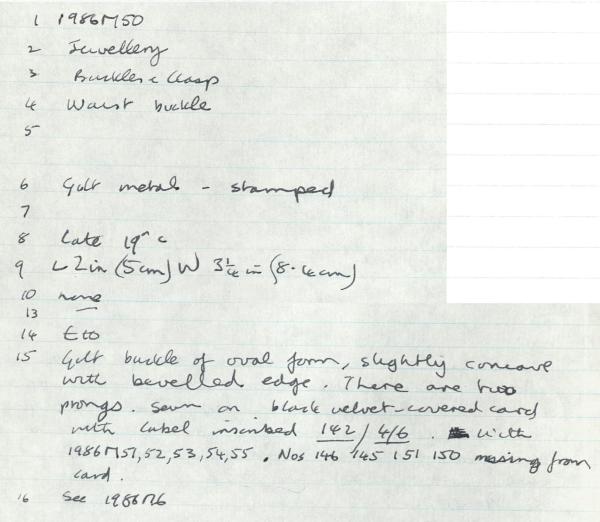 1 1986M50
2 Jewellery
3 Buckles & Clasp
4 Waist buckle
5
6 Gilt metal - stamped
7
8 Late 19th c
9 L 2in (5cm) W 3¼in (8.4cm)
10 none
13
14 Eto
15 Gilt buckle of oval form, slightly concave
with bevelled edge. There are two
prongs. sewn on black velvet-covered card
with label inscribed 142/4/6. With
1986M51,52,53,54,55. Nos 146 145 151 150 missing from
card.
16 See 1986M6